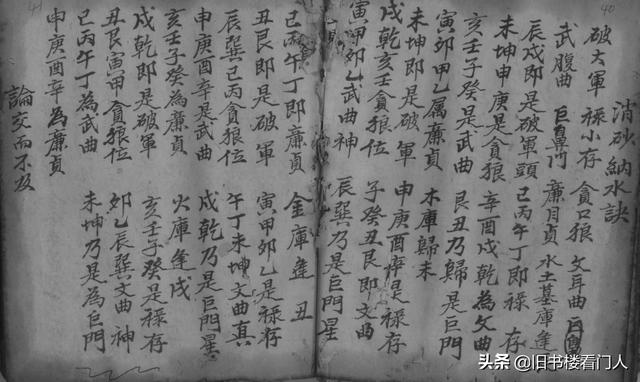 消砂納水訣
破大軍 祿小存 貪口狼 文耳曲
武腹曲 巨鼻門 廉月貞 水土墓庫逢
辰戌即是破軍頭 巳丙午丁即祿存
未坤申庚是貪狼 辛酉戌乾為文曲
亥壬子癸是武曲 艮丑乃歸是巨門
寅卯甲乙属廉貞 木庫歸未
未坤即是破軍 申庚酉辛是祿存
戌乾亥壬貪狼位 子癸丑艮即文曲
寅甲卯乙武曲神 辰巽乃是巨門星
巳丙午丁即廉貞 金庫逢丑
丑艮即是破軍 寅甲卯乙是祿存
辰巽巳丙貪狼位 午丁未坤文曲真
申庚酉辛是武曲 戌乾乃是巨門星
亥壬子癸為廉貞 火庫逢戌
戌乾即是破軍 亥壬子癸是祿存
丑艮寅甲貪狼位 卯乙辰巽文曲神
巳丙午丁為武曲 未坤乃是為巨門
申庚酉辛為廉貞
論交而不及
40
头条 @旧书楼看门人